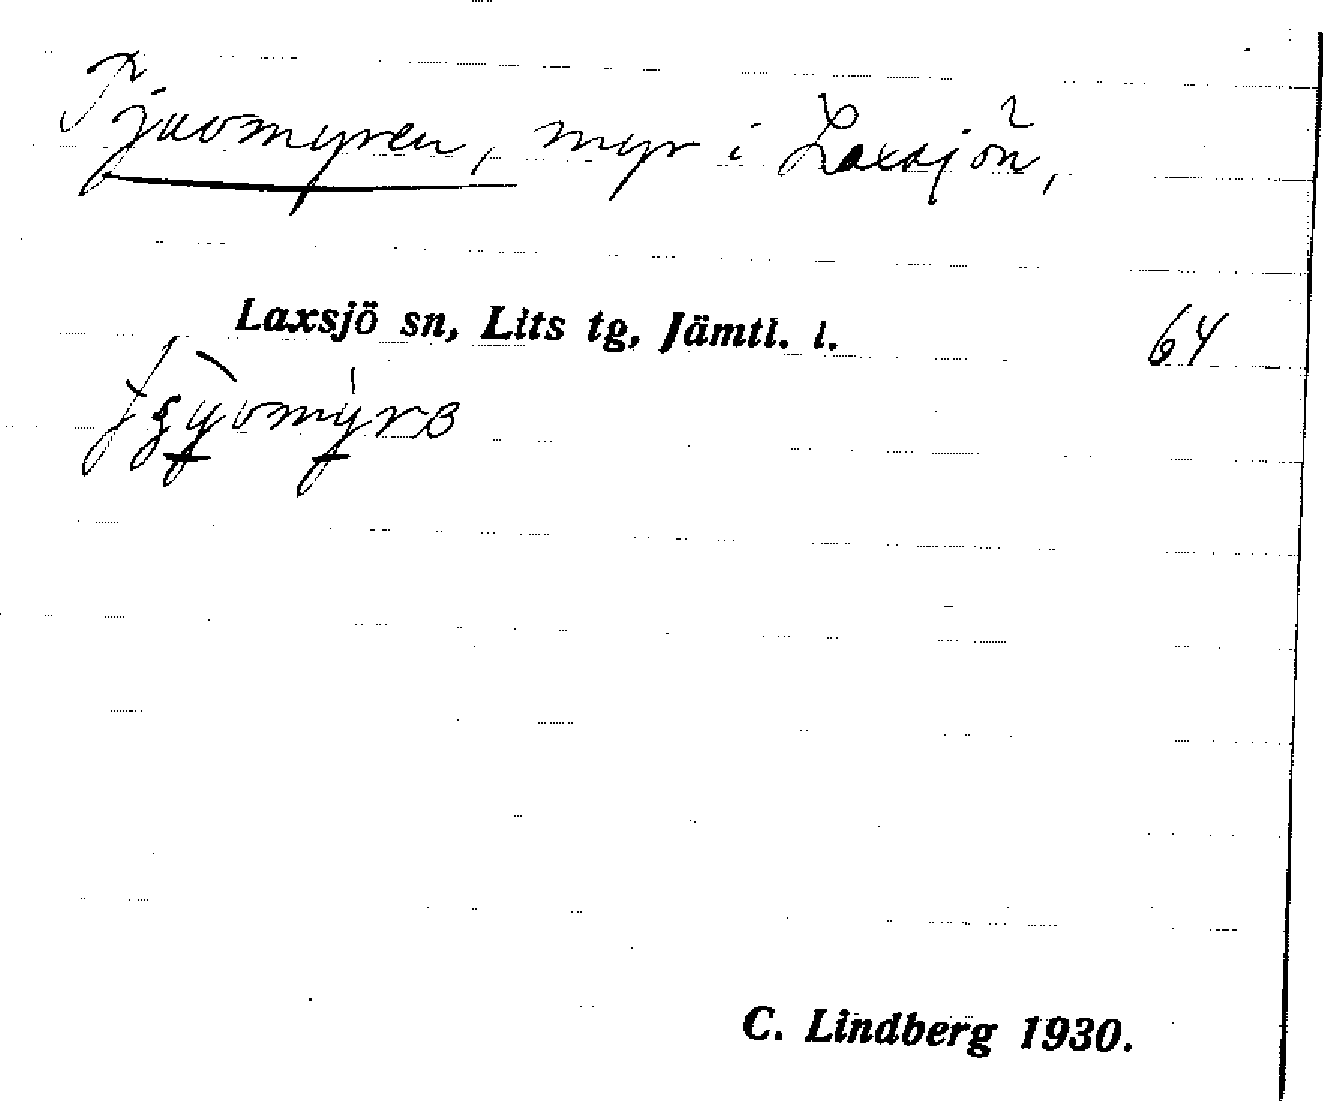 Tjuvmyren, myr i Laxsjön,
Laxsjö sn, Lits tg, Jämtl. l.
64
C. Lindberg 1930.